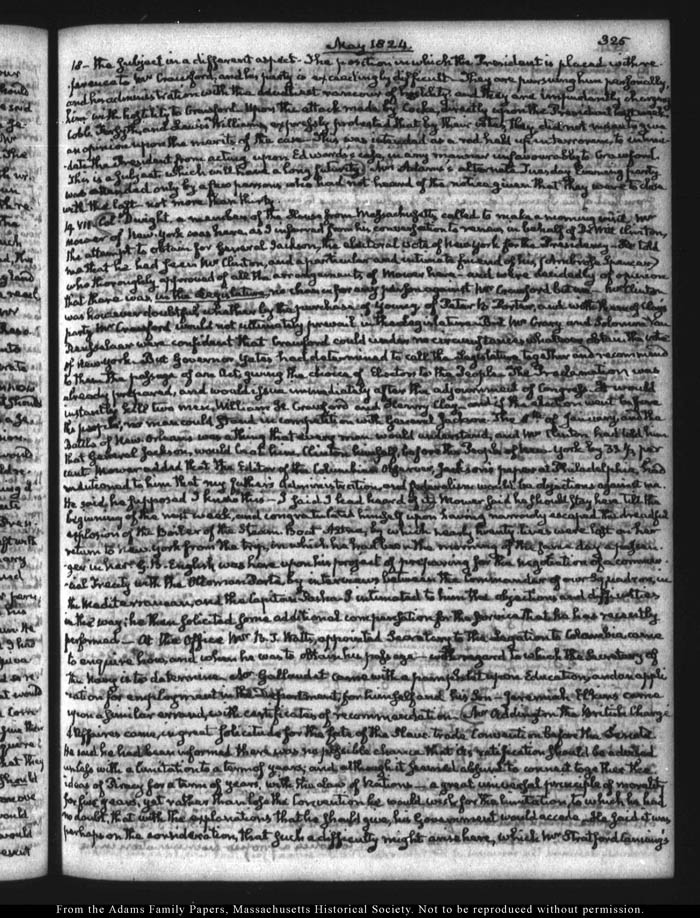 May 1824.
325
18 - the subject in a different aspect - The position in which the President is placed with re-
ference to Mr Crawford, and his party is excruciatingly difficult - They are pursuing him personally,
and his administration with the rancour of hostility, and they are impudently charging
him with hostility to Crawford. Upon the attack made by Cocke, directly upon the President last week,
Cobb, Forsyth, and Lewis Williams, expressly protested that by their votes they did not mean to give
an opinion upon the merits of the case - This was intended as a rod held up in terrorem, to intimi-
date the President from acting upon Edwards's case, in any manner unfavourably to Crawford.
This is a subject which will have a long futurity. Mrs Adams's alternate Tuesday evening party
was attended only by a few persons who had not heard of the notice given that they were to close
with the last - not more than thirty.
19. VII. Coll. Dwight, a member of the House from Massachusetts, called to make a morning visit. Mr
Mower of New-York was here, as I inferred from his conversation to remain in behalf of De Witt Clinton,
the attempt to obtain for General Jackson, the electoral vote of New York for the Presidency - He told
me that he had seen Mr Clinton, and a particular and intimate friend of his (Ambrose Spencer)
who thoroughly approved of all the arrangements of Mower here - and were decidedly of opinion
that there was in the Legislature, no chance for any person against Mr Crawford but me. Mr Clinton
was however doubtful whether by the purchase of Young, of Peter B. Porter, and with them of Clay's
party Mr Crawford would not ultimately prevail in the Legislature. But Mr Crary and Solomon Van
Rensselaer were confident that Crawford could under no circumstances whatever obtain the vote
of New York. But Governor Yates had determined to call the Legislature together and recommend
to them the passage of an Act giving the choice of Electors to the People. The Proclamation was
already prepared, and would issue immediately after the adjournment of Congress. It would
instantly kill two men, William H. Crawford and Henry Clay, and if the election went before
the people, no man could stand in competition with General Jackson. The 8th of January, and the
Battle of New Orleans was a thing that every man would understand, and Mr Clinton had told him
that General Jackson, would beat him, Clinton himself, before the People of New-York by 33 1/3 per
cent. Mower added that the Editor of the Columbian Observer, Jackson's paper at Philadelphia, had
mentioned to him that my father's administration, and federalism would be objections against me.
He said, he supposed I knew this - I said I had heard of it. Mower said he should stay here till the
beginning of the next week, and congratulated himself upon having narrowly escaped the dreadful
explosion of the Boiler of the Steam Boat Aetna, by which nearly twenty lives were lost on her
return to New York from the trip, in which he had been the morning of the same day a passen-
ger in her. G. B. English, was here upon his project of preparing for the negotiation of a commer-
cial Treaty with the Ottoman Porte, by interviews between the Commander of our Squadron, in
the Mediterranean, and the Capitan Pasha. I intimated to him the objections and difficulties
in the way; he then solicited some additional compensation for the service that he has recently
performed - At the Office Mr N. J. Watts, appointed Secretary to the Legation to Colombia, came
to enquire how, and when he was to obtain his passage - with regard to which the Secretary of
the Navy is to determine. Mr Gallaudet came with a pamphlet upon Education, and an appli-
cation for employment in the Department, for himself and his Son - Jeremiah Elkins came
upon a similar errand, with certificates of recommendation - Mr Addington the British Chargé
d'Affaires came, in great solicitude for the fate of the Slave trade Convention before the Senate.
He said he had been informed there was no possible chance that its ratification should be advised
unless with a limitation to a term of years; and although it seemed absurd to connect together the
ideas of Piracy for a term of years, with the Law of Nations - a great universal principle of morality
for five years, yet rather than lose the Convention he would wish for the limitation, to which he had
no doubt, that with the explanations that he should give, his Government would accede. He said it was
perhaps on the consideration, that such a difficulty might arise here, which Mr Stratford Canning's
From the Adams Family Papers, Massachusetts Historical Society. Not to be reproduced without permission.